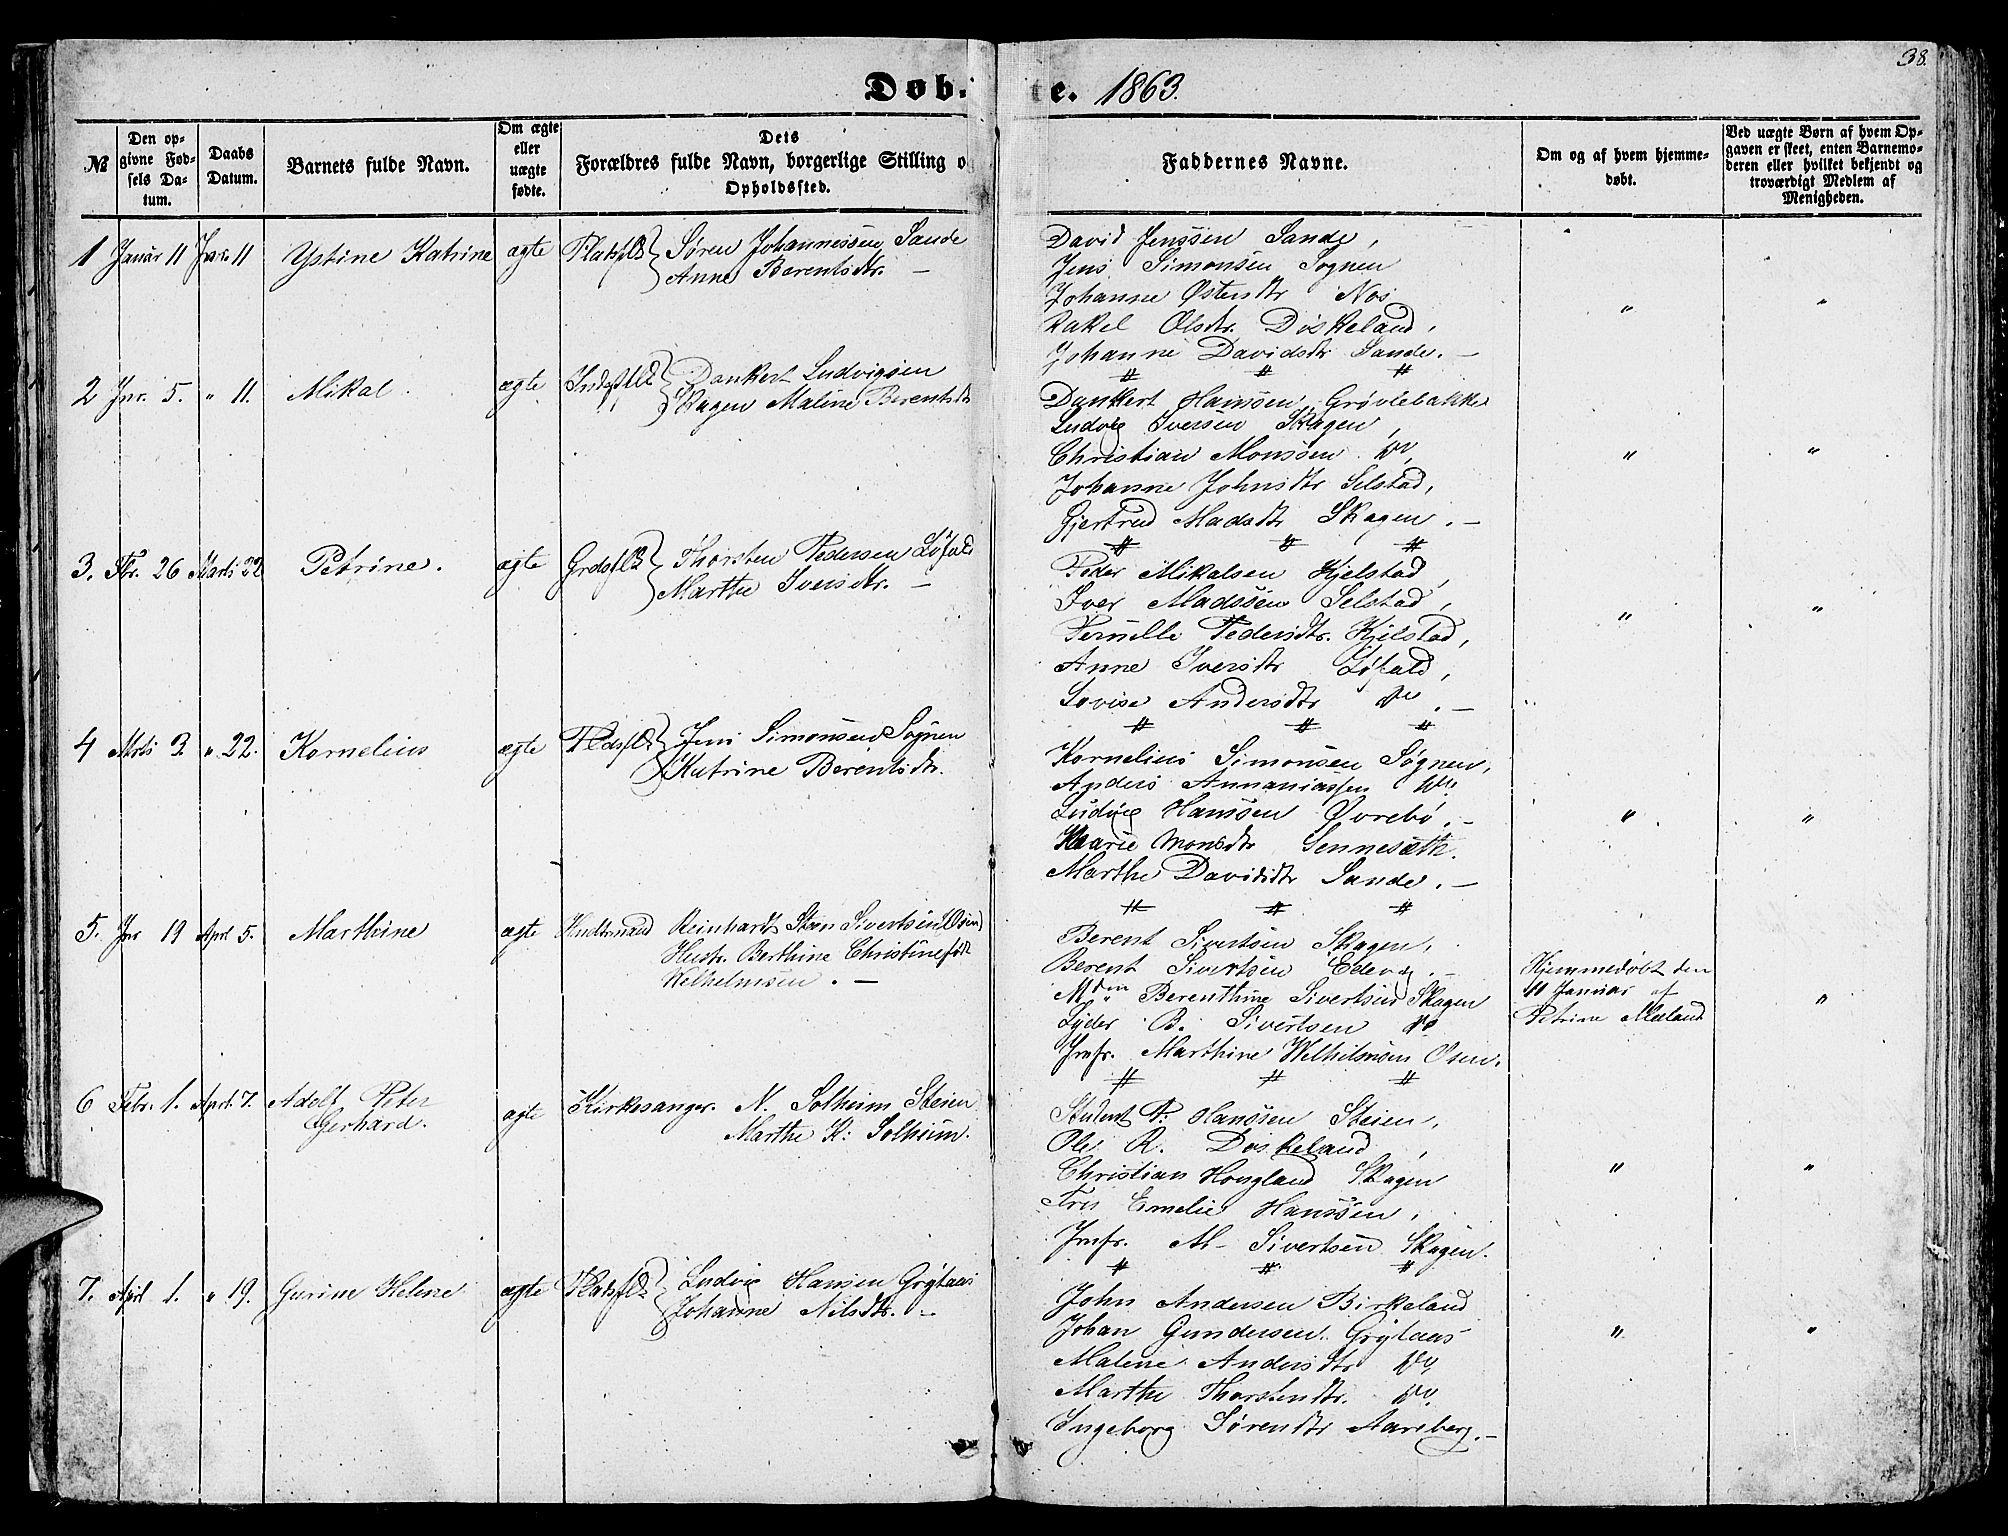 38.
Døb.te. 1863.
№
Den opgivne Fødsels Datum.
Daabs Datum.
Barnets fulde Navn.
Om ægte eller uægte fødte.
Dets Forældres fulde Navn, borgerlige Stilling o Opholdssted.
Faddernes Navne.
Om og af hvem hjemmedøbt.
Ved uægte Børn af hvem Opgaven er skeet, enten Barnemoderen eller hvilket bekjendt og troværdigt Medlem af Menigheden.
1 Januar 11 Jnr. 11 Ystine Katrine ægte Pladsflk Søren Johannessen Sande
Anne Berentsdtr. —
David Jenssen Sande,
Jens Simonsen Sognen
Johanne Østensdtr Nos
Rakel Olsdtr. Døskeland,
Johanne Davidsdtr Sande. —
" "
2 Jnr. 5. " 11. Mikal. ægte Indsflk Dankert Ludvigsen
Skagen Maline Berentsdtr
Dankert Hanssen Grøvlebakke
Ludvig Iversen Skagen,
Christian Monssen do,
Johanne Johnsdtr Selstad,
Gjertrud Madsdtr Skagen. —
" "
3. Fbr. 26 Marts 22 Petrine. ægte Grdsflk Thorsten Pedersen Løfald
Marthe Iversdtr. —
Peder Mikalsen Kjelstad,
Iver Madssen Selstad,
Pernille Pedersdtr. Kjelstad,
Anne Iversdtr Løfald,
Lovise Andersdtr do. —
" "
4 Mrts 3. " 22. Kornelius ægte Pldsflk. Jens Simonsen Sognen
Katrine Berentsdtr.
Kornelius Simonsen Sognen,
Anders Annaniassen do.
Ludvig Hanssen Øvrebø. —
Marie Monsdtr Sennesæth.
Marthe Davidsdtr Sande. —
" "
5. Jnr 19 Aprl 5. Marthine ægte Handtmand Reinhardt Steen Sivertsen (Osen)
Hustr. Berthine Christine født
Welhelmsen. —
Berent Sivertsen Skagen,
Berent Sivertsen Edevg. —
Mdm Berenthine Sivertsen Skagen
Lyder B. Sivertsen do
Jmfr. Marthine Welhelmsen Osen.
Hjemmedøbt den
11 Januar af
Petrine Meland
"
6 Febr. 1. Aprl. 7. Adolf Peter
Gerhard.
ægte Kirkesanger. N. Solheim Steien
Marthe K: Solheim.
Student P: Hanssen Steien,
Ole R. Døskeland,
Christian Hougland Skagen
Frø Emelie Hanssen,
Jmfr. M- Sivertsen Skagen.
" "
7. April 1. " 19. Gurine Helene ægte Pladsflk Ludvig Hansen Grytaas
Johanne Nilsdtr. —
John Andersen Birkeland
Johan Gundersen Grytaas
Malene Andersdtr do,
Marthe Thorstensdtr. do,
Ingeborg Sørensdtr Aarberg. —
" "